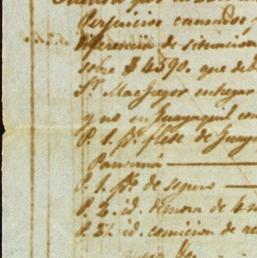 Perjuicios causados
diferencia de situacion
sobre $ 4590. que deb
Sr. MacGregor entregar
y no en Guayaquil con
P. 1 pº. flete de Guay
Panamá
P. 1. pº de seguro
P. 2. id. demora de 4 m
P. 2½ id. comicion de re